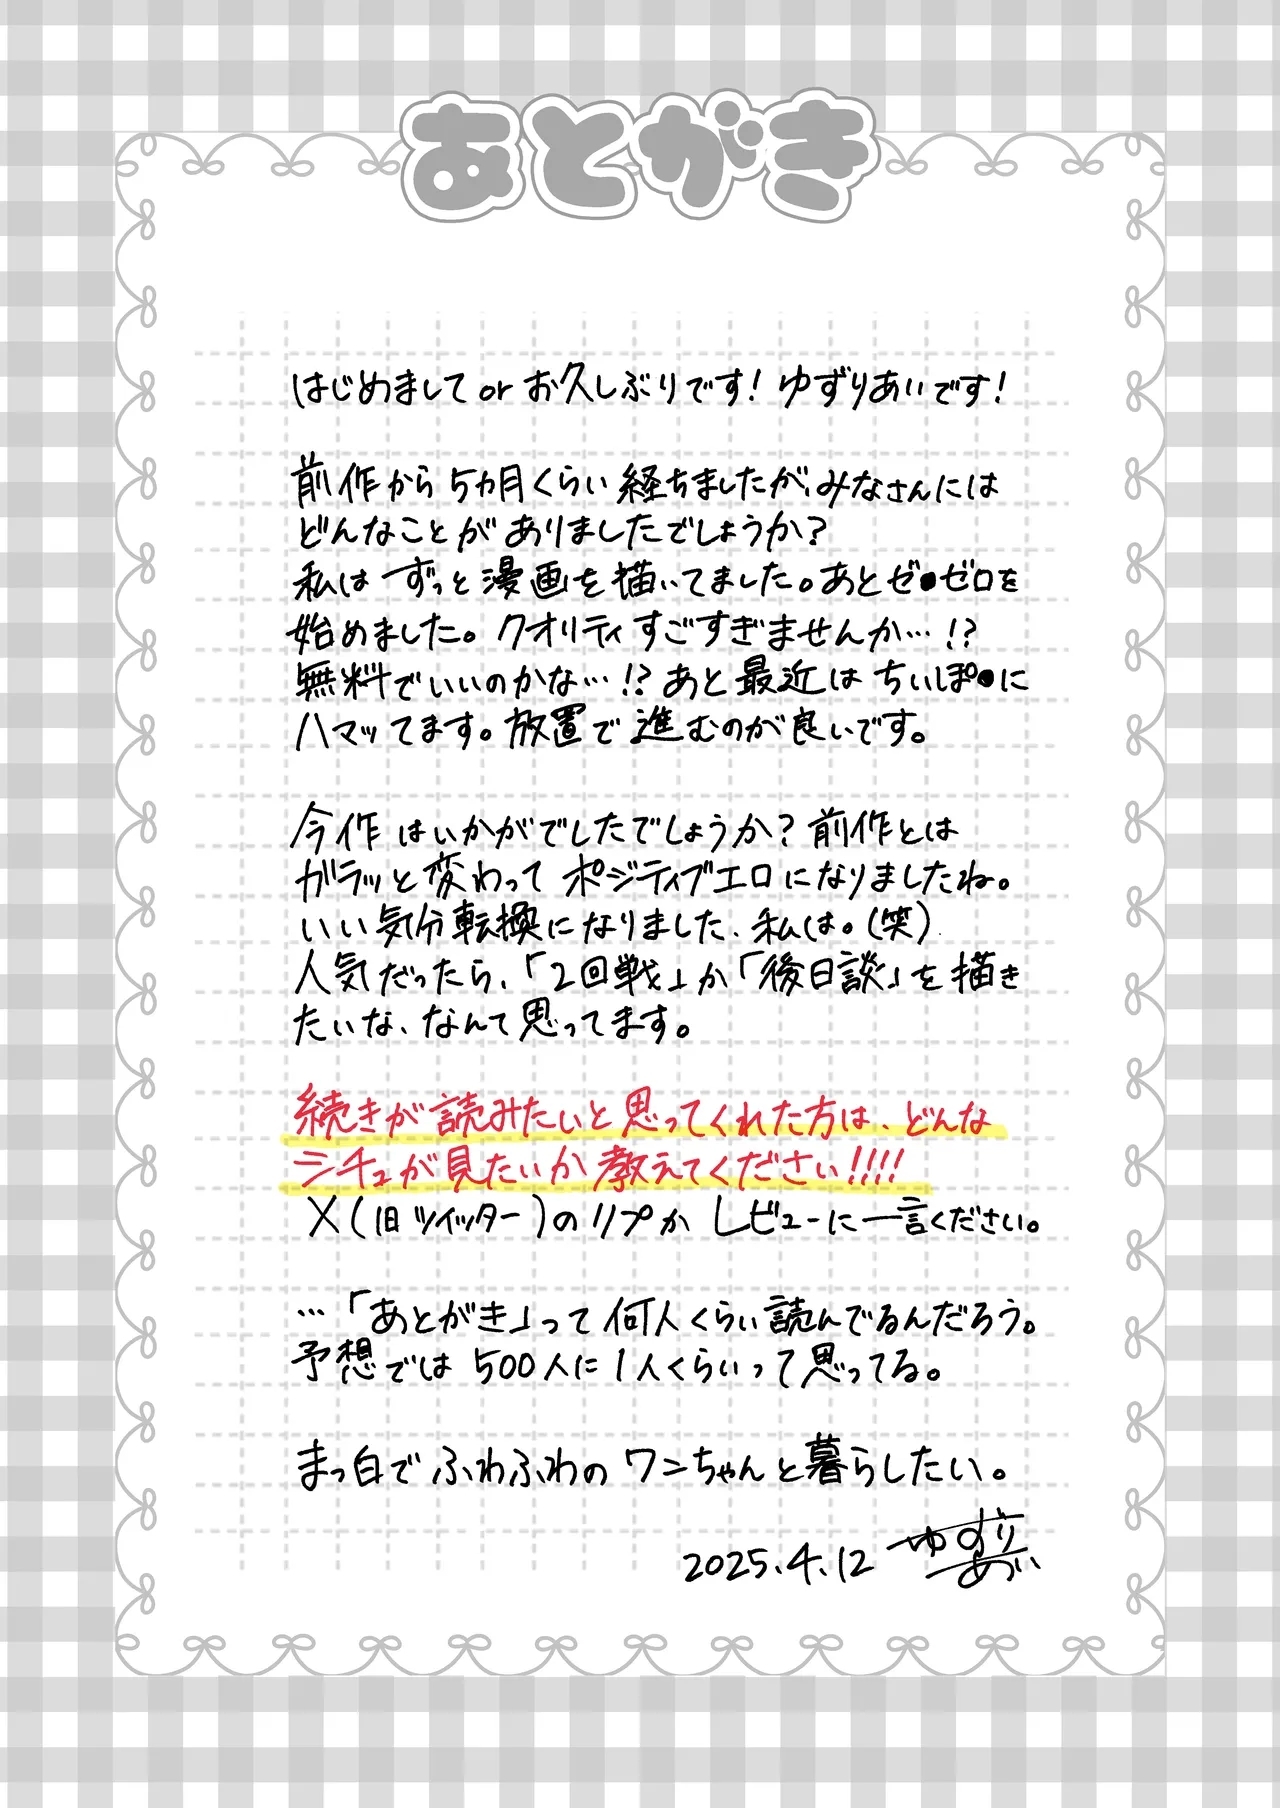 あとがき
はじめまして or お久しぶりです！ゆずりあいです！
前作から5カ月くらい経ちましたが、みなさんには
どんなことがありましたでしょうか？
私はずっと漫画を描いてました。あとゼ●ゼロを
始めました。クオリティすごすぎませんか…！？
無料でいいのかな…！？あと最近はちいぽ●に
ハマッてます。放置で進むのが良いです。
今作はいかがでしたでしょうか？前作とは
ガラッと変わってポジティブエロになりましたね。
いい気分転換になりました、私は。（笑）
人気だったら、「2回戦」か「後日談」を描き
たいな、なんて思ってます。
続きが読みたいと思ってくれた方は、どんな
シチュが見たいか教えてください！！！！
X（旧ツイッター）のリプかレビューに一言ください。
…「あとがき」って何人くらい読んでるんだろう。
予想では500人に1人くらいって思ってる。
まっ白でふわふわのワンちゃんと暮らしたい。
2025.4.12 ゆずり
あい